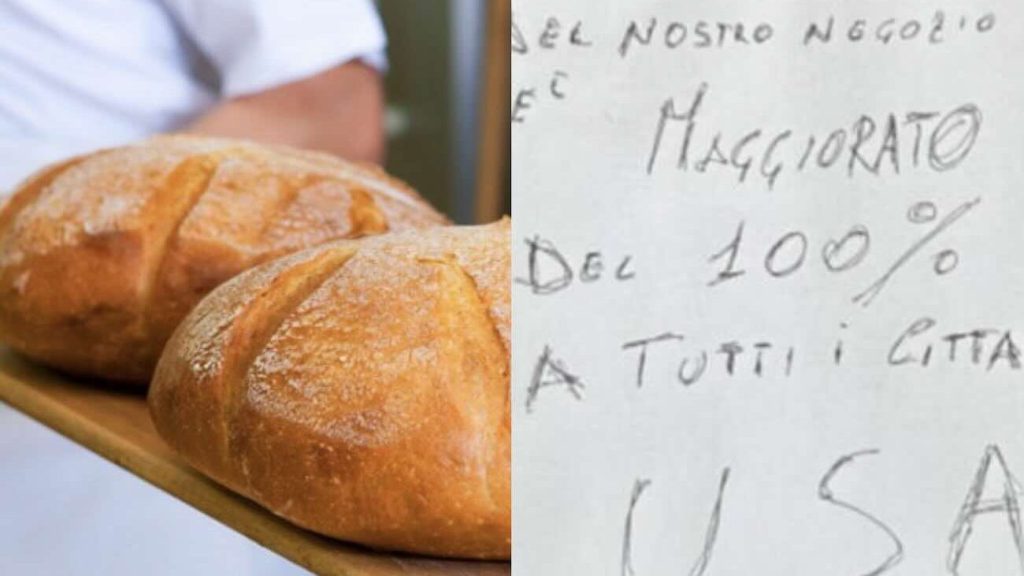 DEL NOSTRO NEGOZIO
E'
MAGGIORATO
DEL 100%
A TUTTI i CITTA
USA